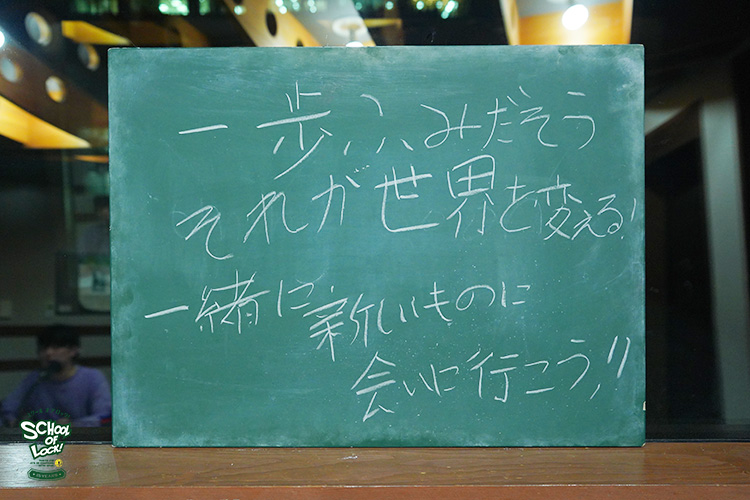 一歩ふみだそう
それが世界を変える!
一緒に新しいものに
会いに行こう!!
SCHOOL
OF
LOCK!